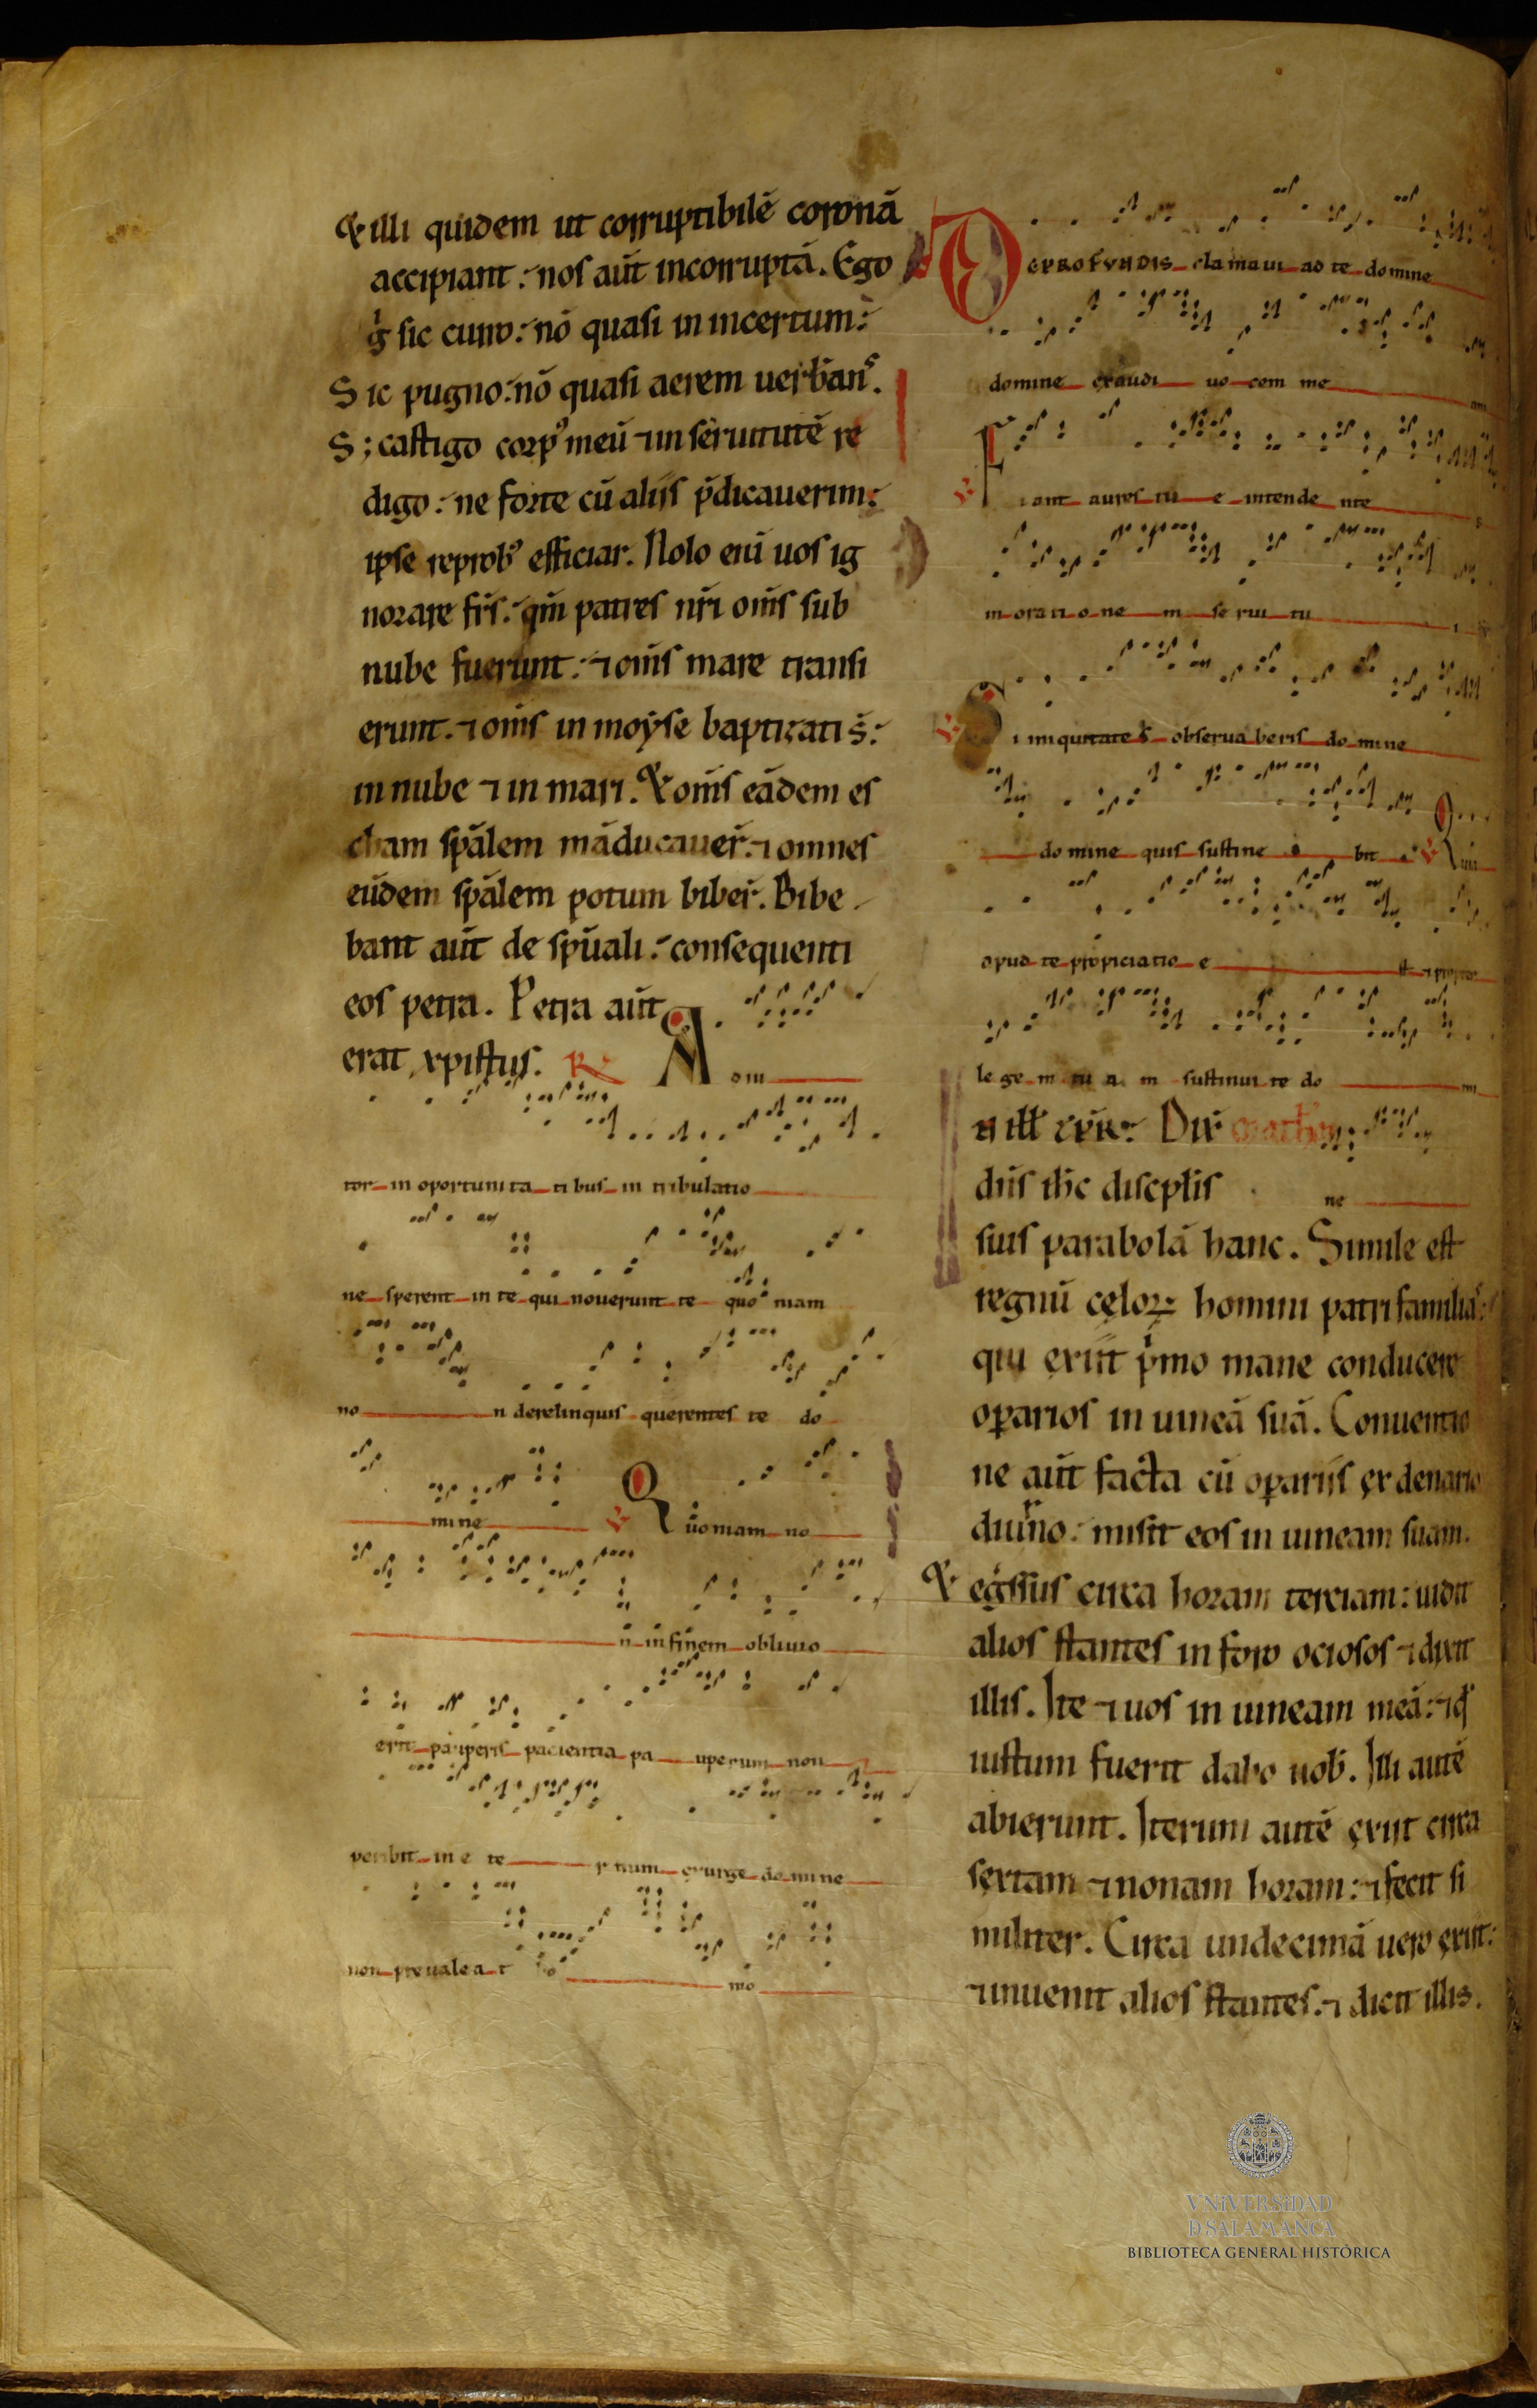 & illi quidem ut corruptibilē coronā
accipiant: nos aūt incorruptā. Ego
g̍ sic curro: nō quasi in incertum:
Sic pugno: nō quasi aerem uerƀans.
S; castigo corp᾿ meū ⁊ in seruitutē re
digo: ne forte cū aliis p̄dicauerim:
ipse reprob᾿ efficiar. Nolo eni uos ig
norare fr̄s: qm̄ patres nr̄i om̄s sub
nube fuerunt: ⁊ om̄s mare transi
erunt. ⁊ om̄s in moẏse baptizati s̄:
in nube ⁊ in mari. & om̄s eādem es
cham spālem māducauer̄. ⁊ omnes
eūdem spālem potum biber̄. Bibe
bant aūt de spūali: consequenti
eos petra. Petra aūt
erat xpistus. R Adiu
tor in oportunita tibus in tribulatio
ne sperent in te qui nouerunt te quoniam
no n derelinquis querentes te do
mine Quoniam no
n in finem obliuio
erit pauperis pacientia pa uperum non
peribit in e te rnum exurge domine
non preualeat ho mo
DE PROFUNDIS clamaui ad te domine
domine exaudi uo cem me am
Fiant aures tu e intende nte s
in orati o ne m se rui tu i
Si iniquitates obserua beris do mine
domine quis sustine bit Quia
apud te propiciatio e st ⁊ propter
le ge m tu a m sustinui te do mi
Dix̄
dn̄s ih̄c discip̄lis ne
suis parabolā hanc. Simile est
regnū cęloꝝ homini patrifamilias:
qui exiit p̍mo mane conducere
oꝑarios in uineā suā. Conuentio
ne aūt facta cū oꝑariis ex denario
diurno: misit eos in uineam suam.
& eg̍ssus circa horam terciam: uidit
alios stantes in foro ociosos ⁊ dixit
illis. Ite ⁊ uos in uineam meā: ⁊ qd
iustum fuerit dabo uob̄. Illi autē
abierunt. Iterum autē exiit circa
sextam ⁊ nonam horam: ⁊ fecit si
militer. Circa undecimā uero exiit:
⁊ inuenit alios stantes. ⁊ dicit illis.
VNIVERSIDAD
D SALAMANCA
BIBLIOTECA GENERAL HISTÓRICA